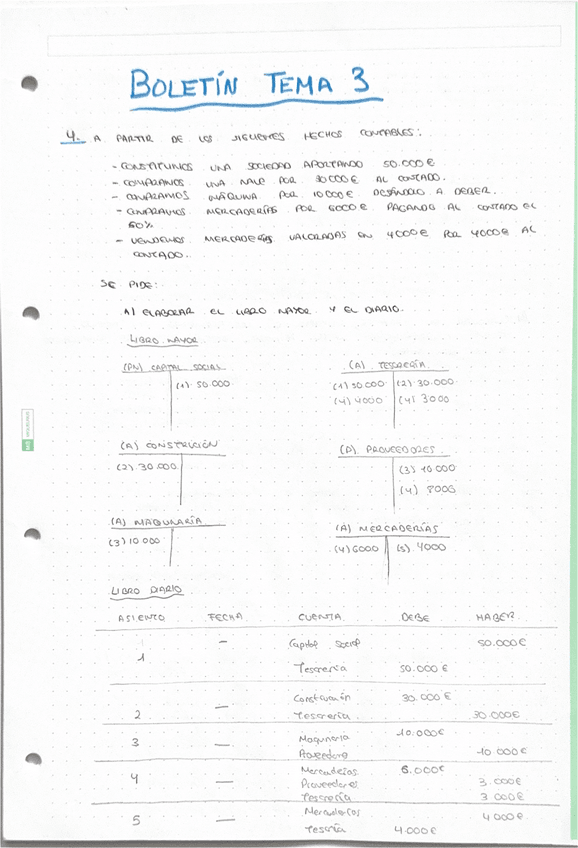 BOLETÍN TEMA 3
4. A PARTIR DE LOS SIGUIENTES HECHOS CONTABLES:
- CONSTITUIMOS UNA SOCIEDAD APORTANDO 50.000€
- COMPRAMOS UNA NAVE POR 30000€ AL CONTADO.
- COMPRAMOS MÁQUINA POR 10000€ DEJÁNDOLO A DEBER.
- COMPRAMOS MERCADERÍAS POR 6000€ PAGANDO AL CONTADO EL
50%
- VENDEMOS MERCADERÍAS VALORADAS EN 4000€ POR 4000€ AL
CONTADO.
SE PIDE:
A) ELABORAR EL LIBRO MAYOR Y EL DIARIO.
LIBRO MAYOR
(PN) CAPITAL SOCIAL (A) TESORERÍA
(1) 50.000 (1) 50.000 (2) 30.000
(4) 4000 (4) 3000
(A) CONSTRUCCIÓN (P) PROVEEDORES
(2) 30.000 (3) 10 000
(4)
(A) MAQUINARÍA (A) MERCADERÍAS
(3) 10 000 (4) 6000 (5) 4000
LIBRO DIARIO
ASIENTO FECHA CUENTA DEBE HABER
1 — Capital social 50.000€
Tesorería 50.000€
Construcción 30.000€
2 — Tesorería 30.000€
3 — Maquinaria 10.000€
Proveedores 10.000€
4 — Mercaderías 6.000€
Proveedores 3.000€
Tesorería 3 000€
5 — Mercaderías 4000€
4.000€